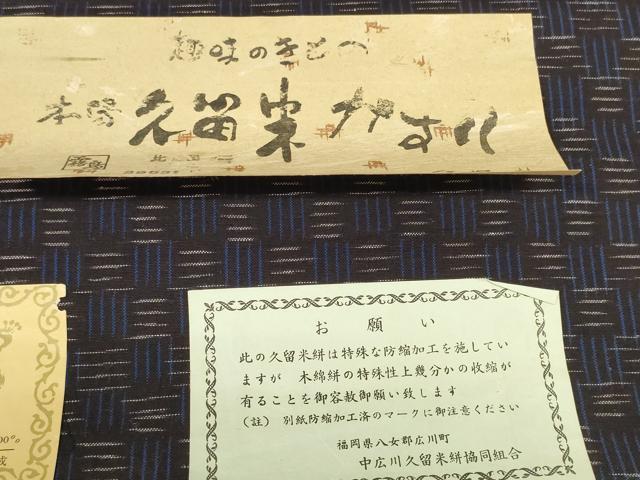 趣味のきもの
本場久留米かすり
お願い
此の久留米絣は特殊な防縮加工を施してい
ますが 木綿絣の特殊性上幾分かの収縮が
有ることを御容赦御願い致します
(註) 別紙防縮加工済のマークに御注意ください
福岡県八女郡広川町
中広川久留米絣協同組合